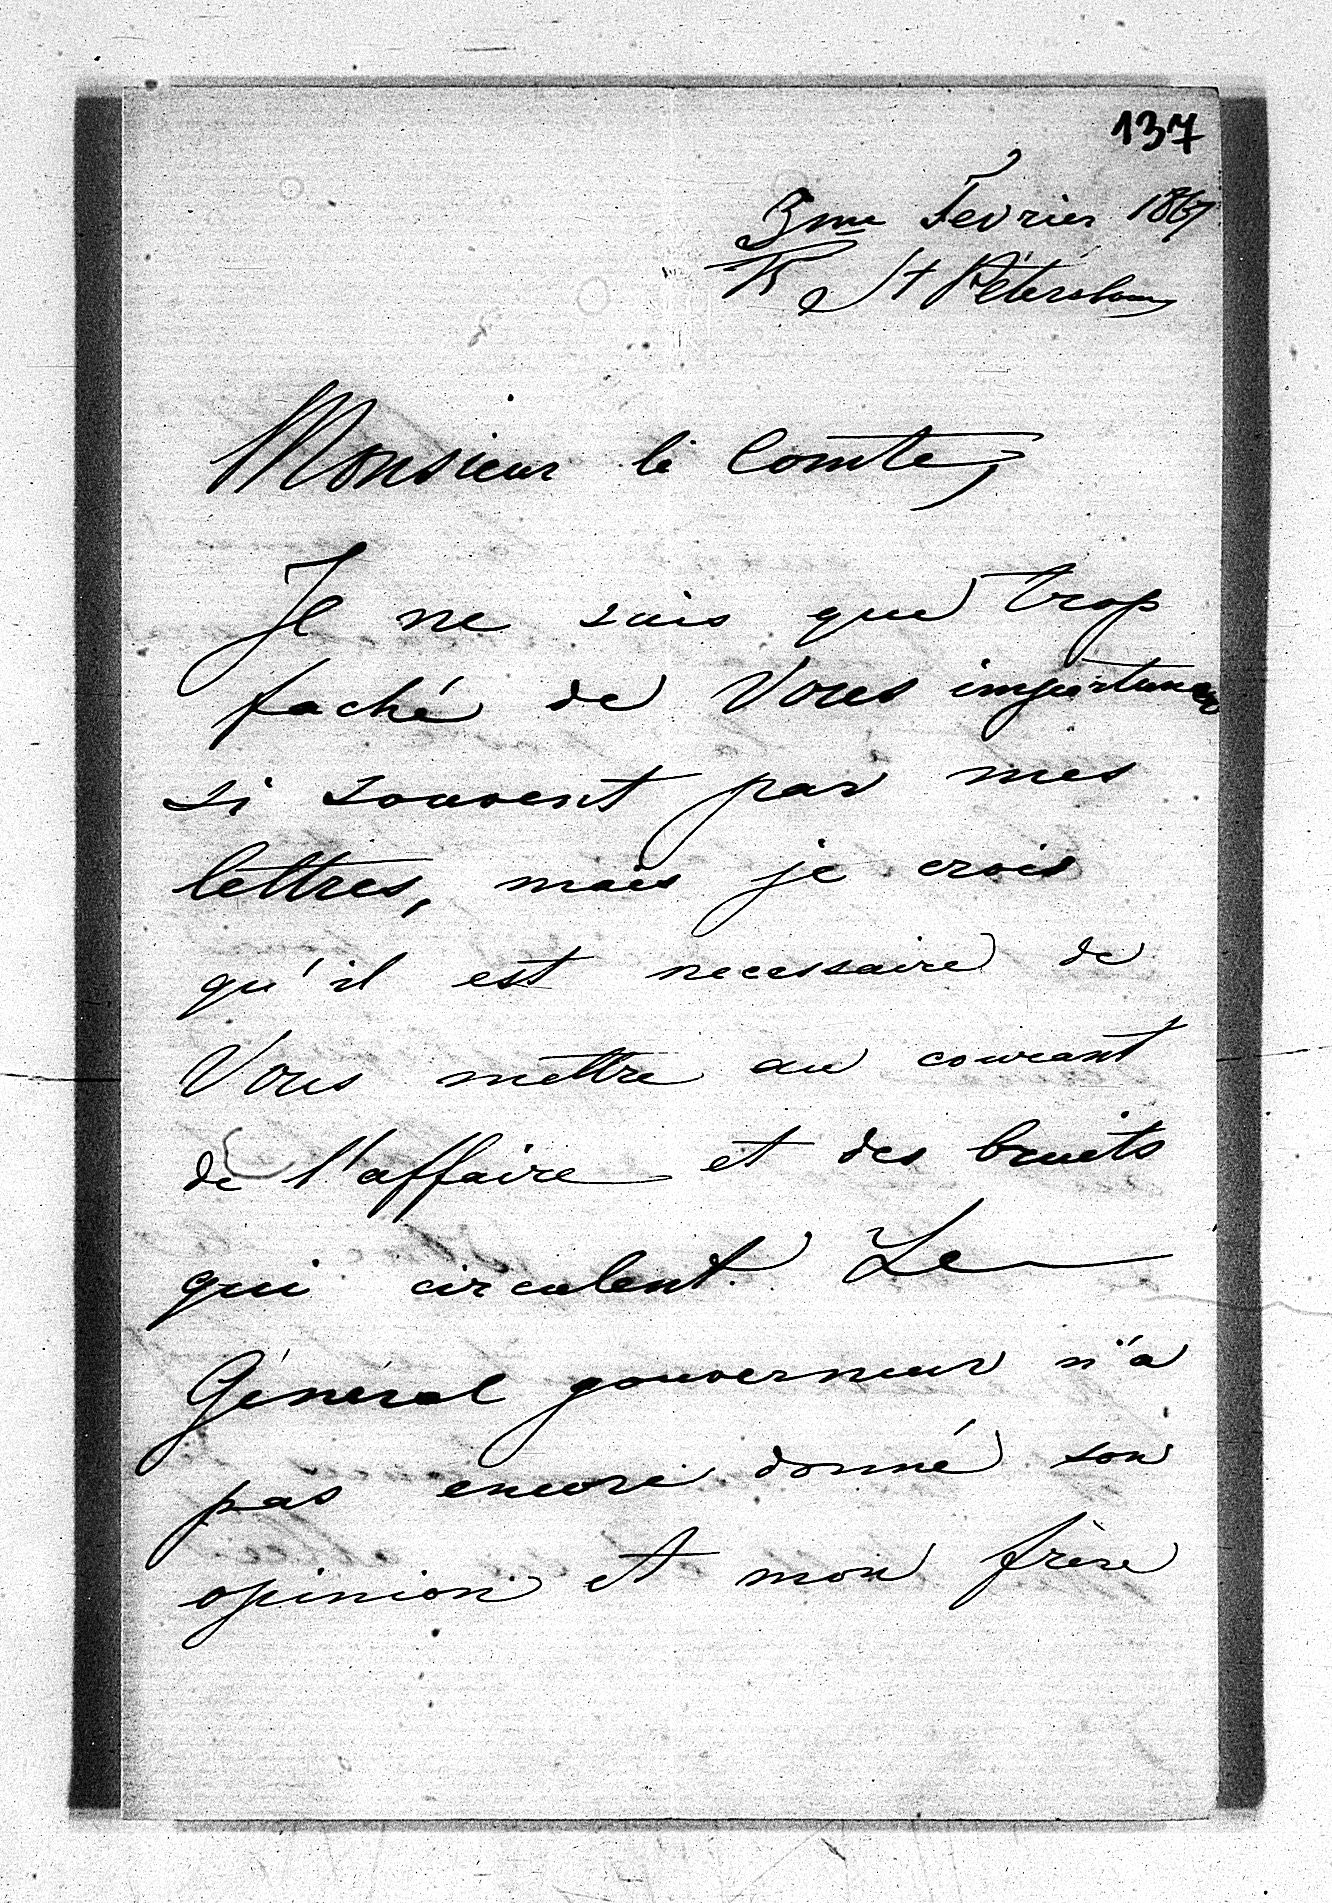 137
3me Fevrier 1867
15 St Pétersbourg
Monsieur le Comte,
Je ne suis que trop
faché de Vous importuner
si souvent par mes
lettres, mais je crois
qu'il est necessaire de
Vous mettre au courant
de l'affaire et des bruits
qui circulent. Le
Général gouverneur n'a
pas encore donné son
opinion et mon frère